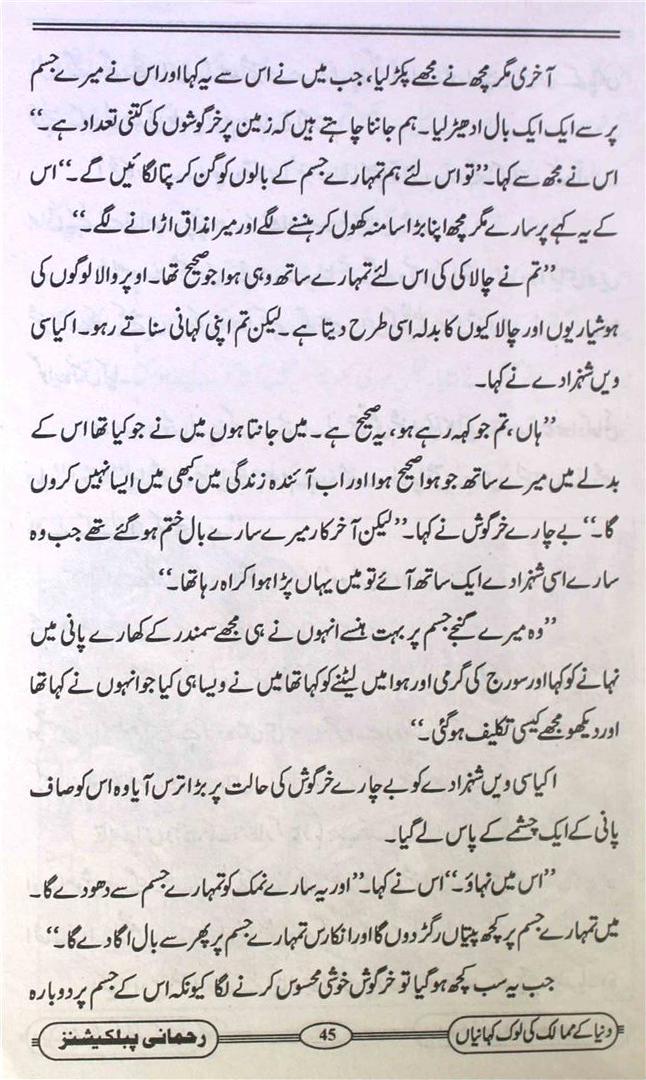 آخری مگرمچھ نے مجھے پکڑ لیا، جب میں نے اس سے یہ کہا اور اس نے میرے جسم
پر سے ایک ایک بال ادھیڑ لیا۔ ہم جاننا چاہتے ہیں کہ زمین پر خرگوشوں کی کتنی تعداد ہے۔‘‘
اس نے مجھ سے کہا۔ ’’تو اس لئے ہم تمہارے جسم کے بالوں کو گن کر پتا لگائیں گے۔‘‘ اس
کے یہ کہے پر سارے مگرمچھ اپنا بڑا سا منہ کھول کر ہنسنے لگے اور میرا مذاق اڑانے لگے۔‘‘
’’تم نے چالاکی کی اس لئے تمہارے ساتھ وہی ہوا جو صحیح تھا۔ اوپر والا لوگوں کی
ہوشیاریوں اور چالاکیوں کا بدلہ اسی طرح دیتا ہے۔ لیکن تم اپنی کہانی سناتے رہو۔ اکیاسی
ویں شہزادے نے کہا۔
’’ہاں، تم جو کہہ رہے ہو، یہ صحیح ہے۔ میں جانتا ہوں میں نے جو کیا تھا اس کے
بدلے میں میرے ساتھ جو ہوا صحیح ہوا اور اب آئندہ زندگی میں کبھی میں ایسا نہیں کروں
گا۔‘‘ بے چارے خرگوش نے کہا۔ ’’لیکن آخر کار میرے سارے بال ختم ہو گئے تھے جب وہ
سارے اسی شہزادے ایک ساتھ آئے تو میں یہاں پڑا ہوا کراہ رہا تھا۔‘‘
’’وہ میرے گنجے جسم پر بہت ہنسے انہوں نے ہی مجھے سمندر کے کھارے پانی میں
نہانے کو کہا اور سورج کی گرمی اور ہوا میں لیٹنے کو کہا تھا میں نے ویسا ہی کیا جو انہوں نے کہا تھا
اور دیکھو مجھے کیسی تکلیف ہو گئی۔‘‘
اکیاسی ویں شہزادے کو بے چارے خرگوش کی حالت پر بڑا ترس آیا وہ اس کو صاف
پانی کے ایک چشمے کے پاس لے گیا۔
’’اس میں نہاؤ۔‘‘ اس نے کہا۔ ’’اور یہ سارے نمک کو تمہارے جسم سے دھو دے گا۔
میں تمہارے جسم پر کچھ پیتاں رگڑ دوں گا اور انکا رس تمہارے جسم پر پھر سے بال اگا دے گا۔‘‘
جب یہ سب کچھ ہو گیا تو خرگوش خوشی محسوس کرنے لگا کیونکہ اس کے جسم پر دوبارہ
دنیا کے ممالک کی لوک کہانیاں 45 رحمانی پبلکیشنز